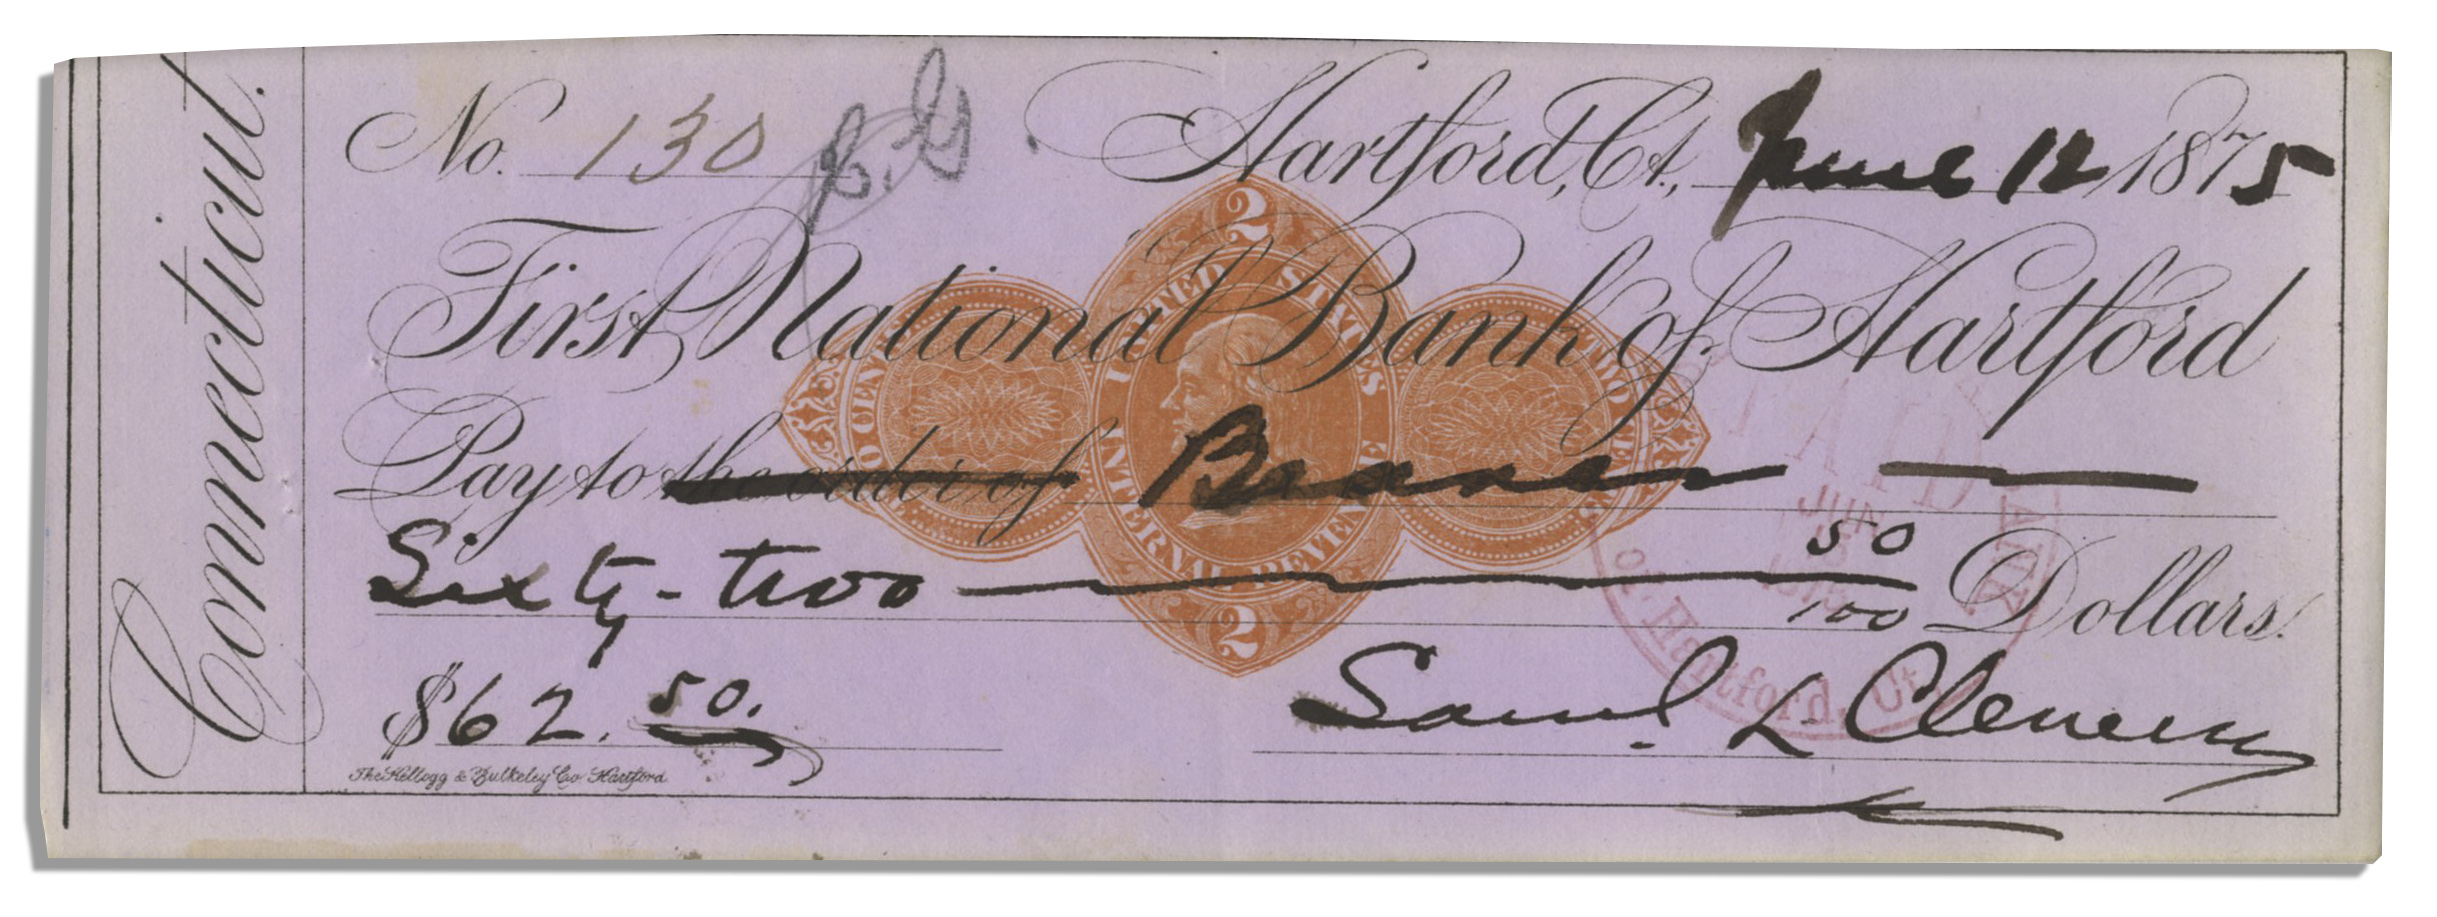 Connecticut.
No. 130
Hartford, Ct., June 12 1875
First National Bank of Hartford
Pay to the order of Bearer
Sixty-two 50/100 Dollars.
$62.50.
Saml. L. Clemens
The Kellogg & Bulkeley Co Hartford
2
UNITED STATES
INTERNAL REVENUE
TWO CENTS
2
PAID
JUN
of Hartford, Ct.